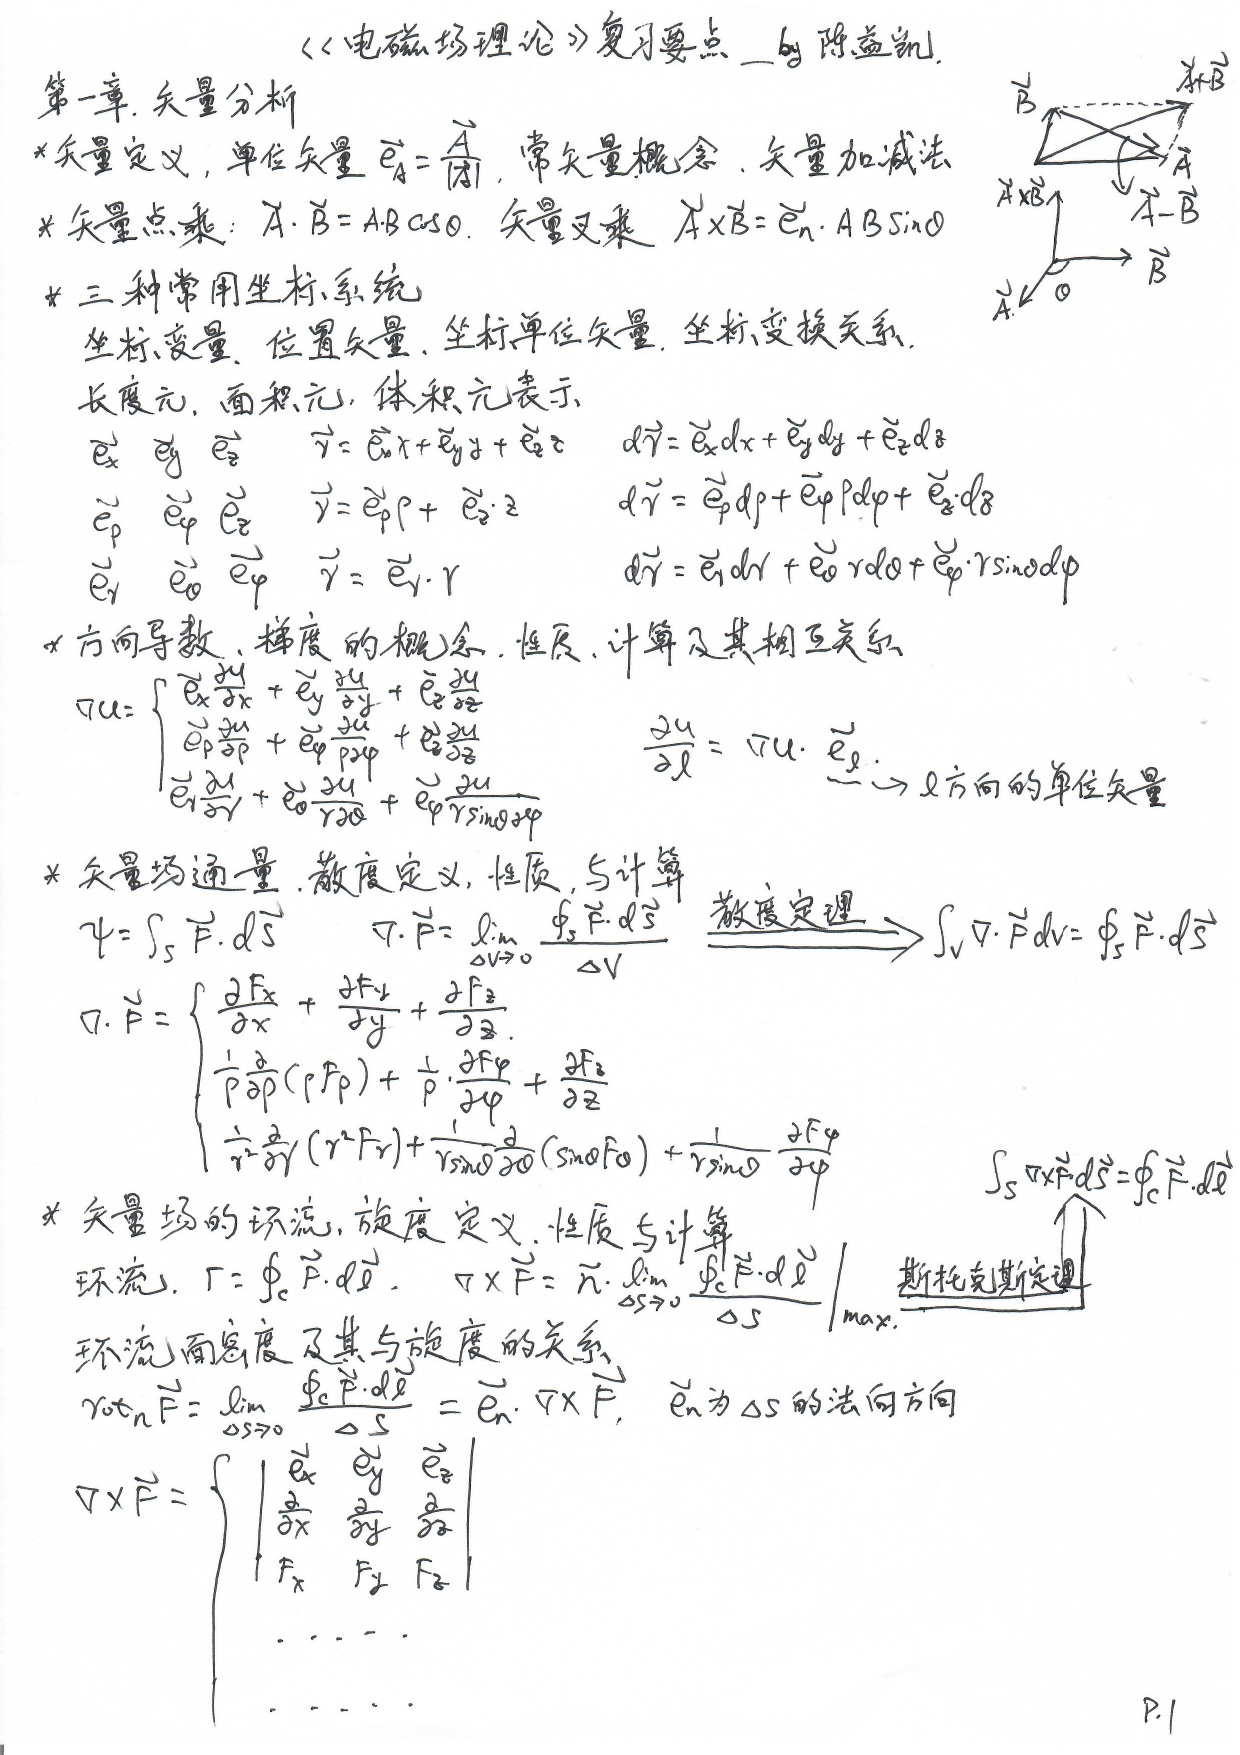 《电磁场理论》复习要点 _by 陈益凯.
第一章. 矢量分析
*矢量定义, 单位矢量 e⃗_A = A⃗/|A⃗|, 常矢量概念、矢量加减法
B⃗ A⃗+B⃗
A⃗
A⃗−B⃗
* 矢量点乘: A⃗·B⃗ = A·B cosθ. 矢量叉乘 A⃗×B⃗ = e⃗_n·AB sinθ
A⃗×B⃗
B⃗
A⃗ θ
* 三种常用坐标系统
坐标变量、位置矢量、坐标单位矢量、坐标变换关系.
长度元, 面积元, 体积元表示
e⃗_x e⃗_y e⃗_z r⃗ = e⃗_x x + e⃗_y y + e⃗_z z dr⃗ = e⃗_x dx + e⃗_y dy + e⃗_z dz
e⃗_ρ e⃗_φ e⃗_z r⃗ = e⃗_ρ ρ + e⃗_z·z dr⃗ = e⃗_ρ dρ + e⃗_φ ρdφ + e⃗_z·dz
e⃗_r e⃗_θ e⃗_φ r⃗ = e⃗_r·r dr⃗ = e⃗_r dr + e⃗_θ rdθ + e⃗_φ·r sinθ dφ
* 方向导数、梯度的概念、性质、计算及其相互关系
∇u = { e⃗_x ∂u/∂x + e⃗_y ∂u/∂y + e⃗_z ∂u/∂z
e⃗_ρ ∂u/∂ρ + e⃗_φ ∂u/ρ∂φ + e⃗_z ∂u/∂z
e⃗_r ∂u/∂r + e⃗_θ ∂u/r∂θ + e⃗_φ ∂u/r sinθ∂φ
∂u/∂l = ∇u·e⃗_l.
→ l方向的单位矢量
* 矢量场通量、散度定义, 性质, 与计算
ψ = ∫_S F⃗·dS⃗ ∇·F⃗ = lim_{ΔV→0} ∮_S F⃗·dS⃗ / ΔV 散度定理 ⇒ ∫_V ∇·F⃗ dV = ∮_S F⃗·dS⃗
∇·F⃗ = { ∂F_x/∂x + ∂F_y/∂y + ∂F_z/∂z.
1/ρ ∂/∂ρ (ρF_ρ) + 1/ρ·∂F_φ/∂φ + ∂F_z/∂z
1/r² ∂/∂r (r²F_r) + 1/r sinθ ∂/∂θ (sinθF_θ) + 1/r sinθ ∂F_φ/∂φ
∫_S ∇×F⃗·dS⃗ = ∮_C F⃗·dl⃗
* 矢量场的环流, 旋度定义、性质与计算
环流. Γ = ∮_C F⃗·dl⃗. ∇×F⃗ = n⃗·lim_{ΔS→0} ∮_C F⃗·dl⃗ / ΔS |max. 斯托克斯定理
环流面密度及其与旋度的关系
rot_n F⃗ = lim_{ΔS→0} ∮_C F⃗·dl⃗ / ΔS = e⃗_n·∇×F⃗, e⃗_n为ΔS的法向方向
∇×F⃗ = { | e⃗_x e⃗_y e⃗_z |
| ∂/∂x ∂/∂y ∂/∂z |
| F_x F_y F_z |
· · · · ·
· · · · ·
P.1